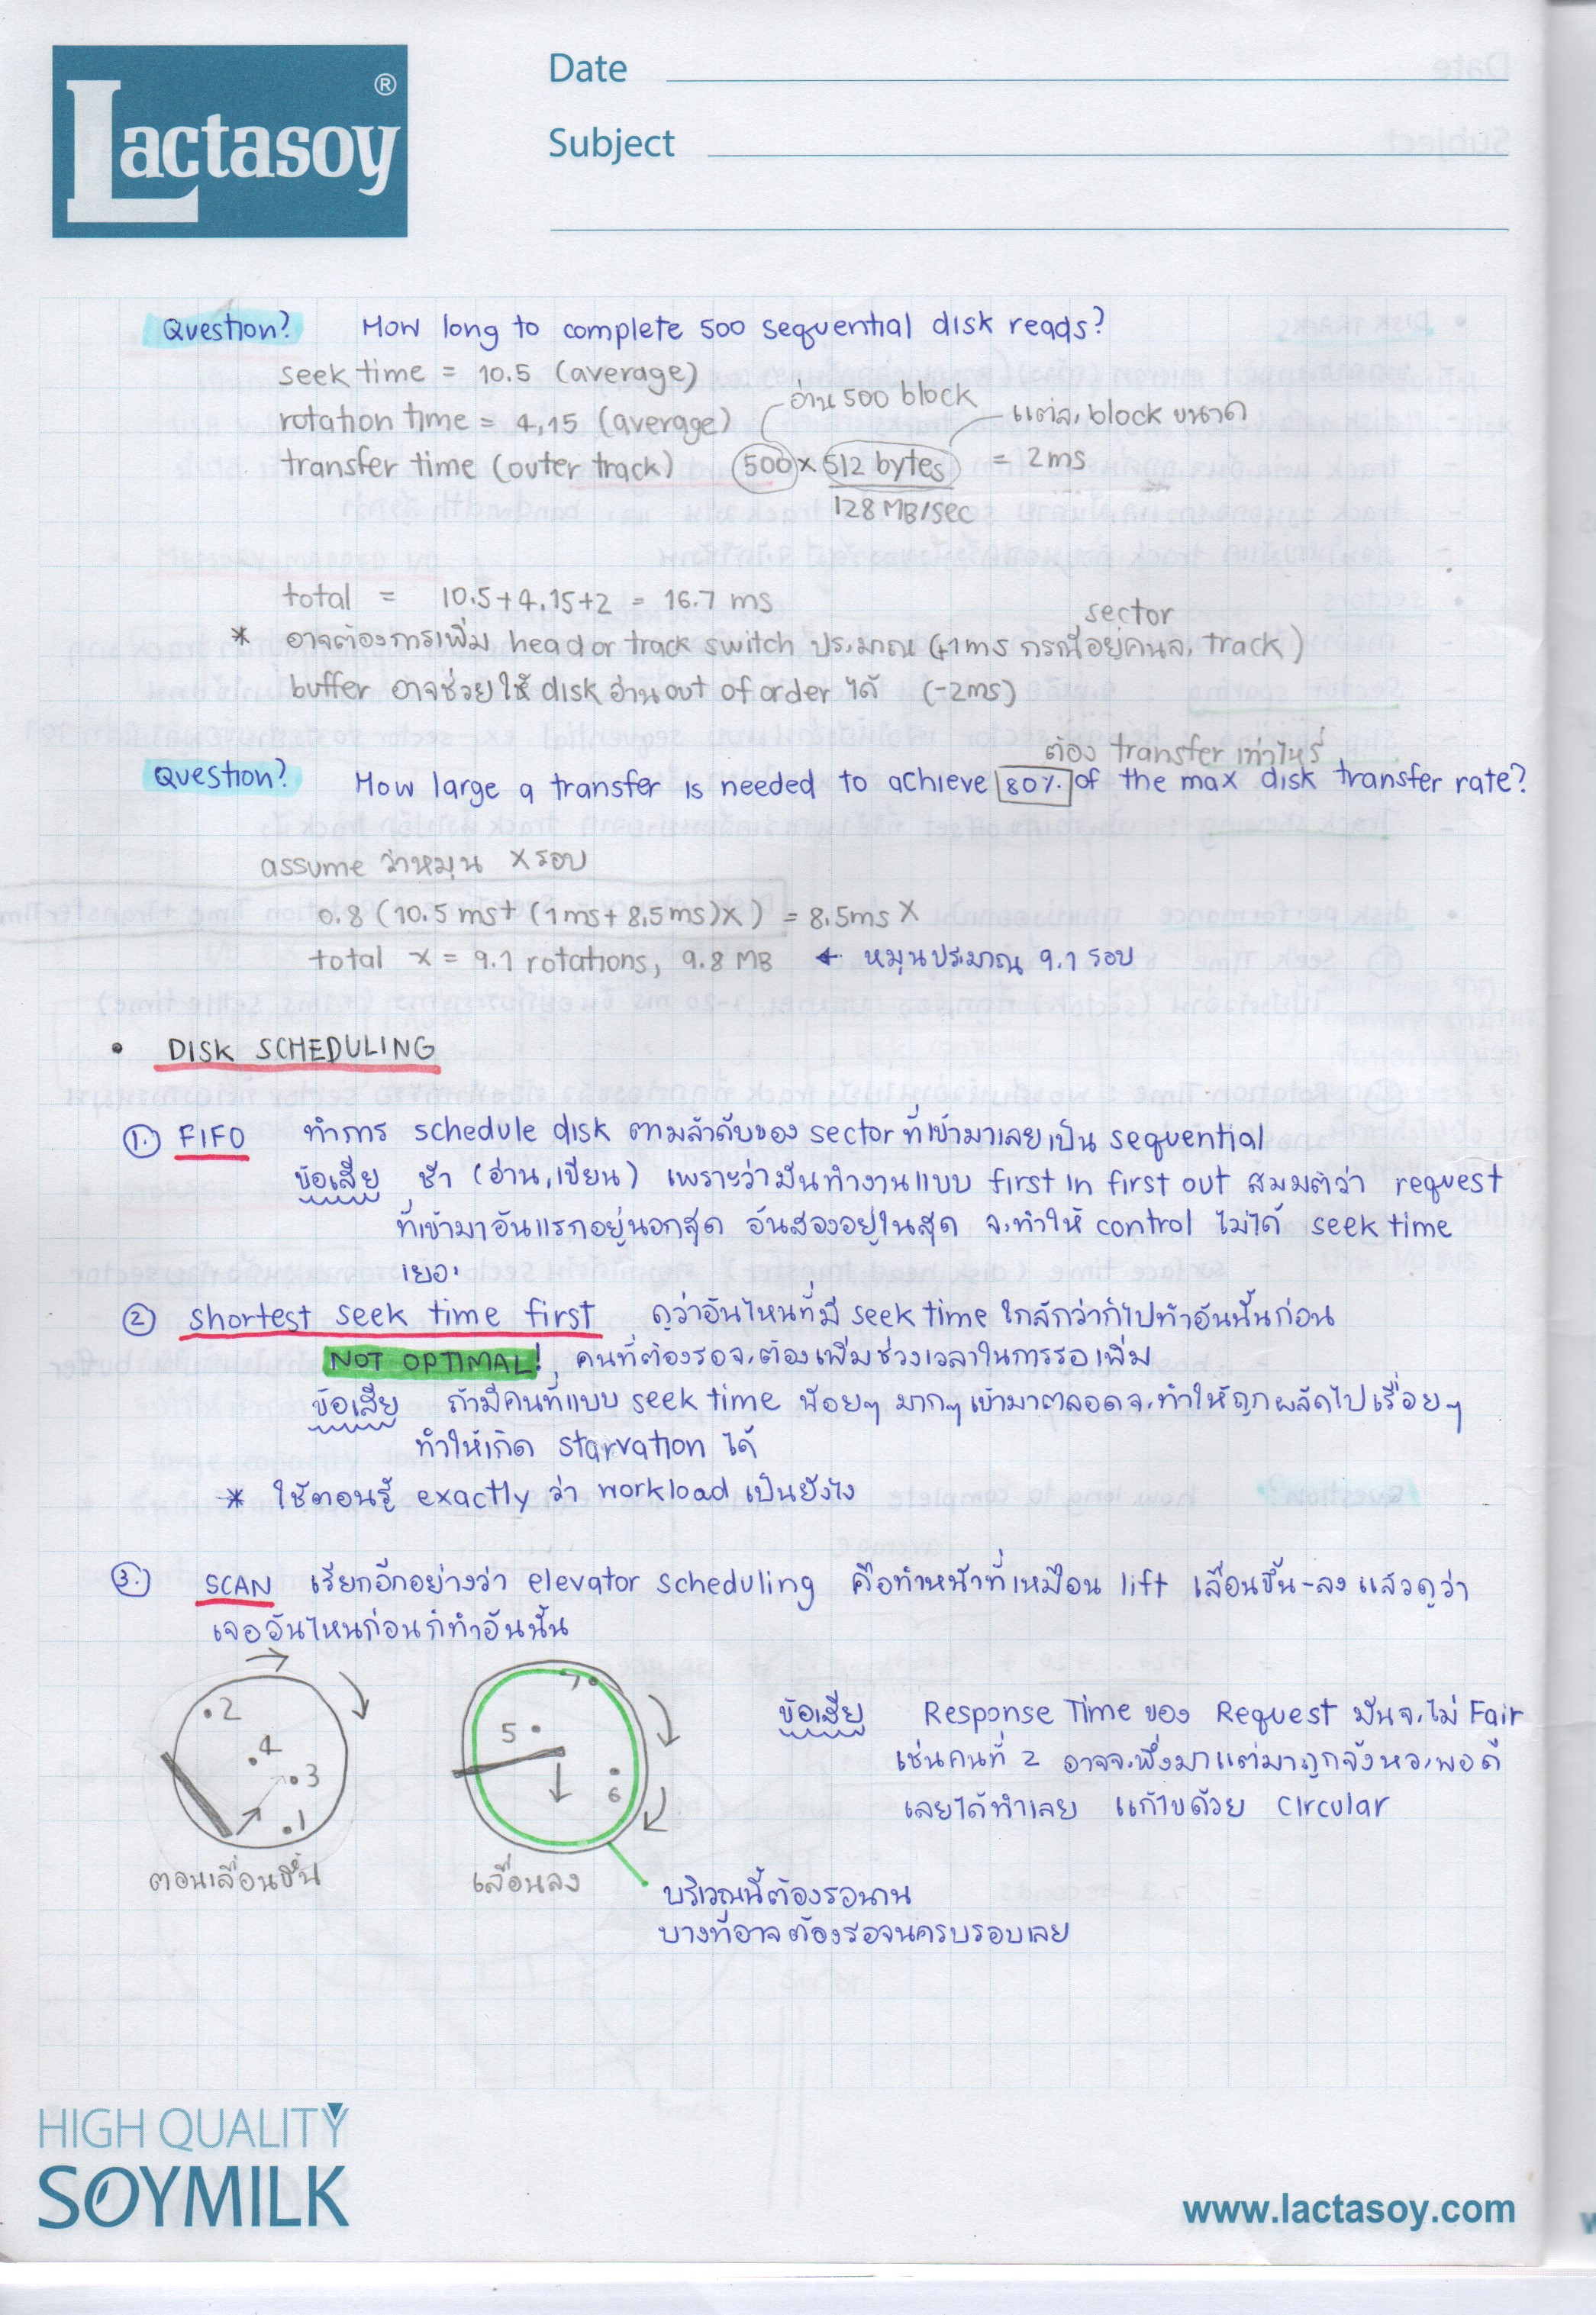 Lactasoy ®
Date
Subject
Question? How long to complete 500 sequential disk reads?
seek time = 10.5 (average)
อ่าน 500 block
rotation time = 4.15 (average)
แต่ละ block ขนาด
transfer time (outer track) 500 x 512 bytes = 2ms
128 MB/sec
total = 10.5+4.15+2 = 16.7 ms
sector
* อาจต้องการเพิ่ม head or track switch ประมาณ (+1ms กรณีอยู่คนละ track)
buffer อาจช่วยให้ disk อ่าน out of order ได้ (-2ms)
ต้อง transfer เท่าไหร่
Question? How large a transfer is needed to achieve 80% of the max disk transfer rate?
assume ว่าหมุน x รอบ
0.8 (10.5 ms+ (1ms+8.5ms)x) = 8.5ms x
total x = 9.1 rotations, 9.8 MB ← หมุนประมาณ 9.1 รอบ
• DISK SCHEDULING
1. FIFO ทำการ schedule disk ตามลำดับของ sector ที่เข้ามาเลยเป็น sequential
ข้อเสีย ช้า (อ่าน,เขียน) เพราะว่ามันทำงานแบบ first in first out สมมติว่า request
ที่เข้ามาอันแรกอยู่นอกสุด อันสองอยู่ในสุด จะทำให้ control ไม่ได้ seek time
เยอะ
2 shortest seek time first ดูว่าอันไหนที่มี seek time ใกล้กว่าก็ไปทำอันนั้นก่อน
NOT OPTIMAL! คนที่ต้องรอจะต้องเพิ่มช่วงเวลาในการรอเพิ่ม
ข้อเสีย ถ้ามีคนที่แบบ seek time น้อยๆ มากๆ เข้ามาตลอดจะทำให้ถูกผลัดไปเรื่อยๆ
ทำให้เกิด starvation ได้
* ใช้ตอนรู้ exactly ว่า workload เป็นยังไง
3. SCAN เรียกอีกอย่างว่า elevator scheduling คือทำหน้าที่เหมือน lift เลื่อนขึ้น-ลง แล้วดูว่า
เจออันไหนก่อนก็ทำอันนั้น
2
4
3
1
7
5
6
ข้อเสีย Response Time ของ Request มันจะไม่ Fair
เช่นคนที่ 2 อาจจะพึ่งมาแต่มาถูกจังหวะพอดี
เลยได้ทำเลย แก้ไขด้วย circular
ตอนเลื่อนขึ้น
เลื่อนลง
บริเวณนี้ต้องรอนาน
บางทีอาจต้องรอจนครบรอบเลย
HIGH QUALITY
SOYMILK
www.lactasoy.com